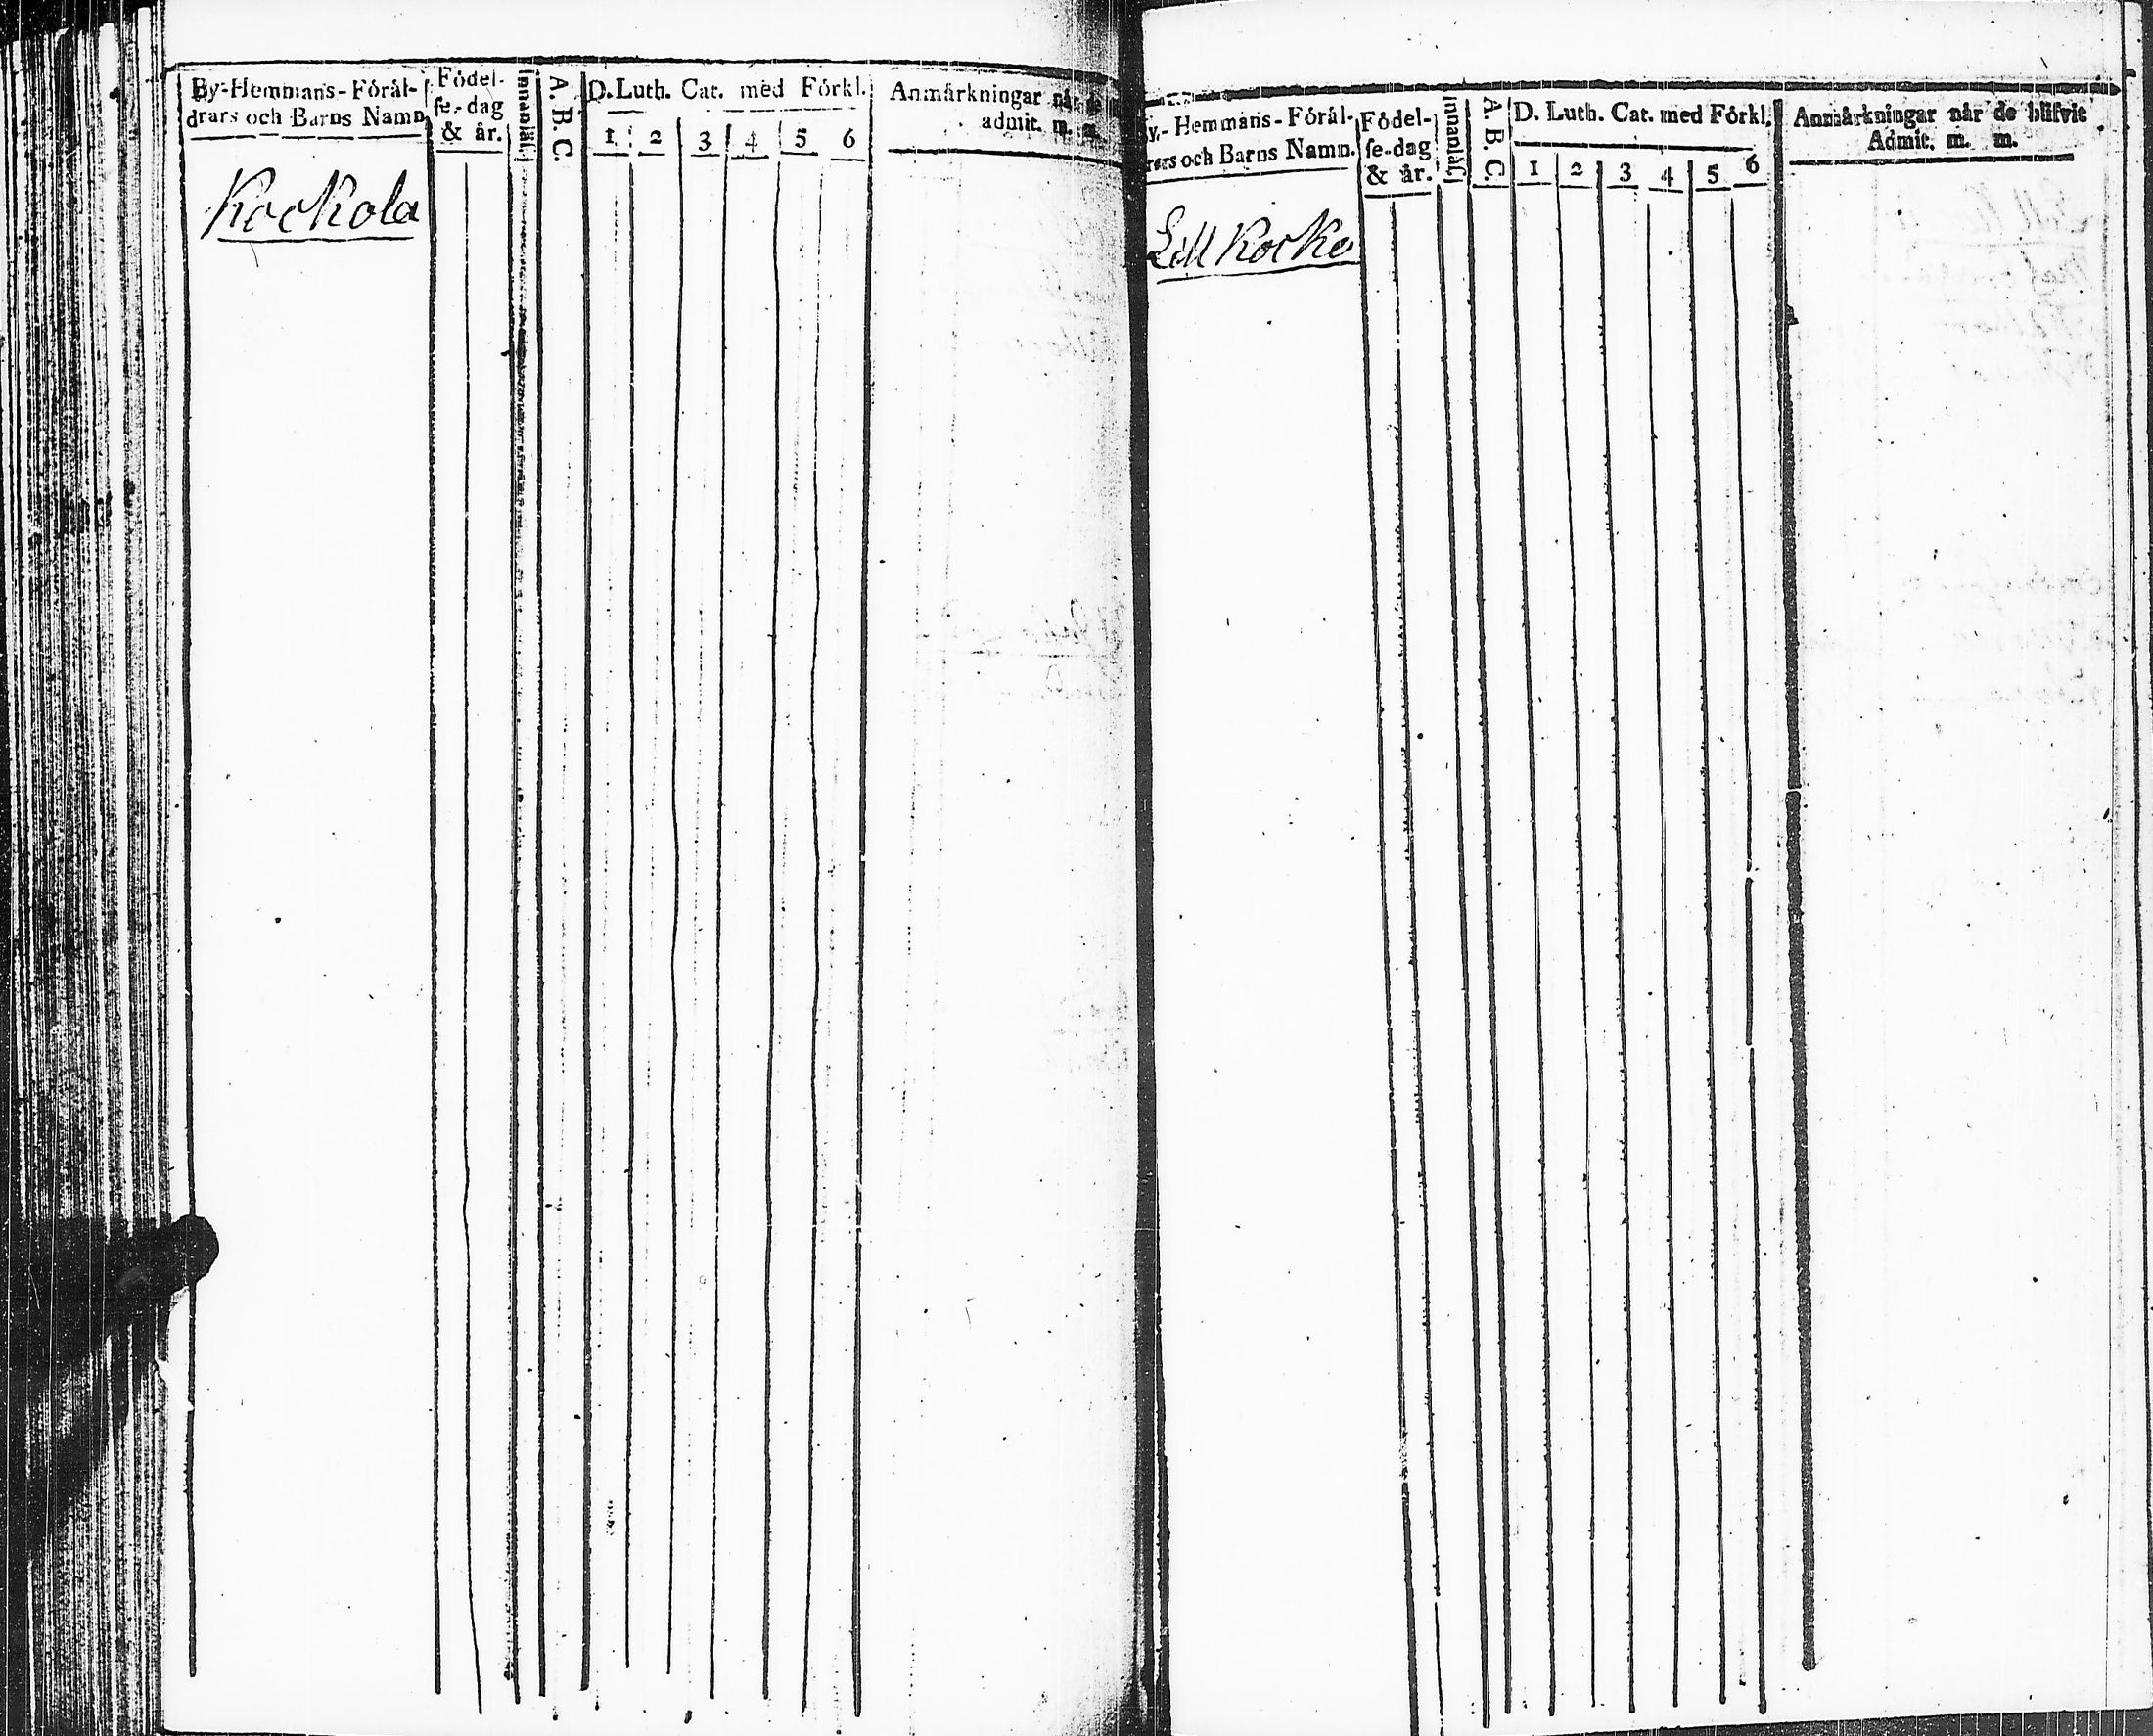 By-Hemmans-Förål-
drars och Barns Namn
Födel-
se-dag
& år.
Innanläs.
A. B. C.
D. Luth. Cat. med Förkl.
1 2 3 4 5 6
Anmårkningar når de
admit. m. m.
Kockola
By-Hemmans-Förål-
drars och Barns Namn.
Födel-
se-dag
& år.
Innanläs.
A. B. C.
D. Luth. Cat. med Förkl.
1 2 3 4 5 6
Anmårkningar når de blifvit
Admit. m. m.
Lill Kocko